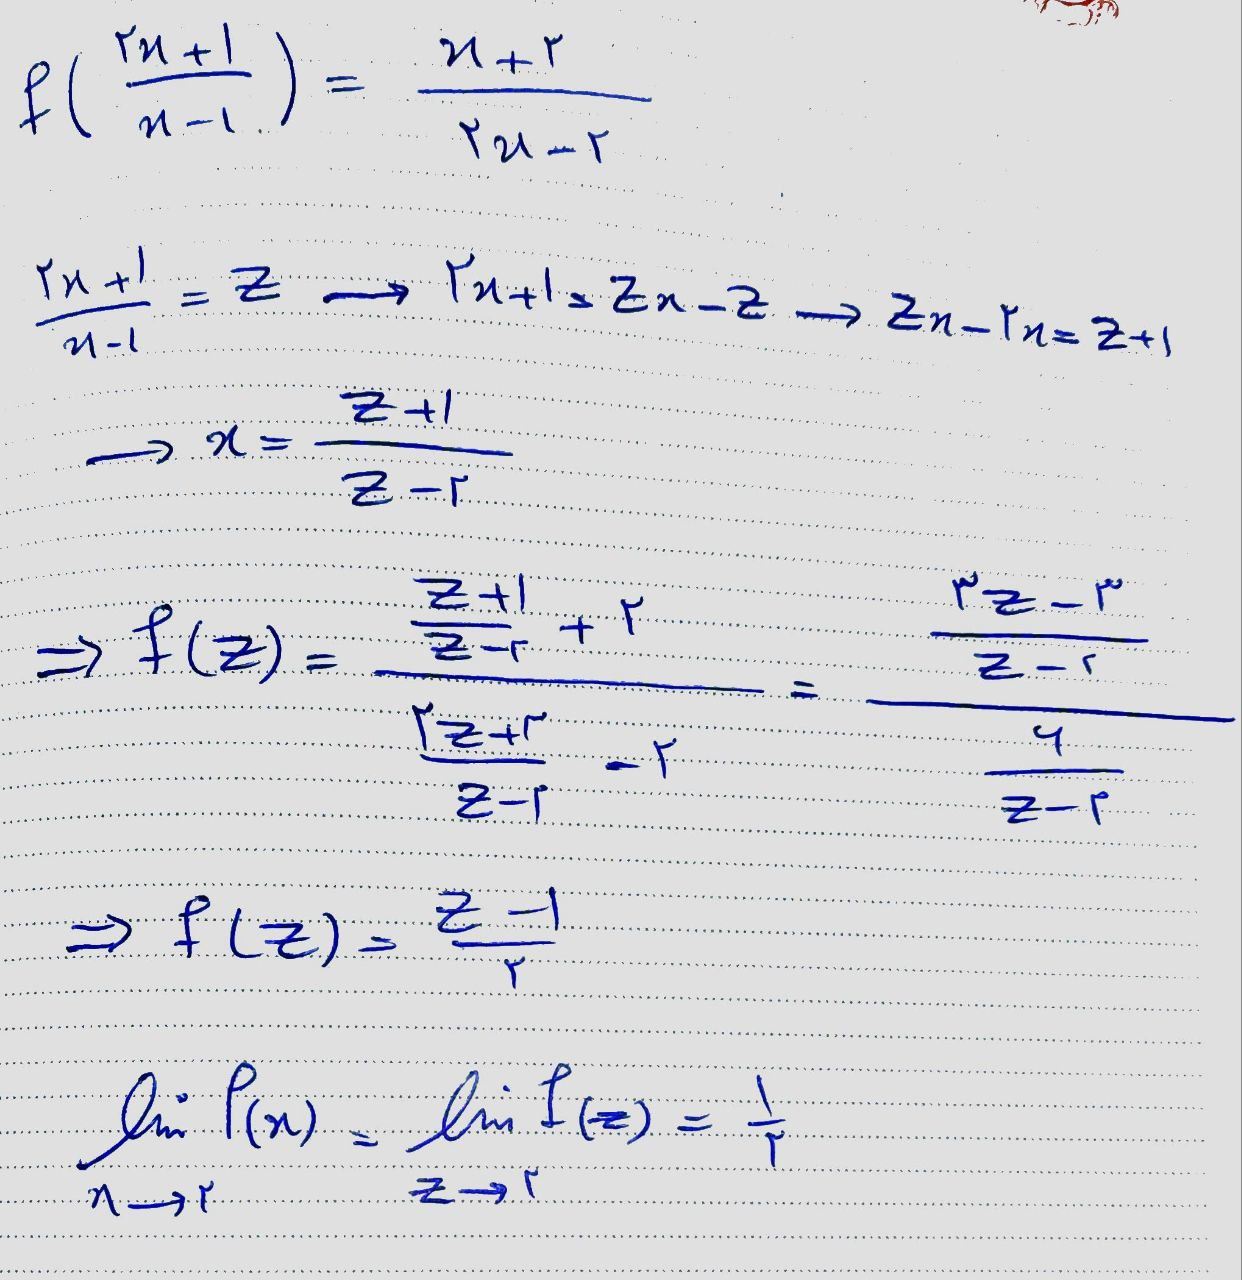 f((۲x+۱)/(x-۱)) = (x+۲)/(۲x-۲)
(۲x+۱)/(x-۱) = z → ۲x+۱ = zx-z → zx-۲x = z+۱
→ x = (z+۱)/(z-۲)
⇒ f(z) = ((z+۱)/(z-۲) + ۲)/((۲z+۲)/(z-۲) - ۲) = ((۳z-۳)/(z-۲))/(۶/(z-۲))
⇒ f(z) = (z-۱)/۲
lim f(x) = lim f(z) = ۱/۲
x→۲ z→۲